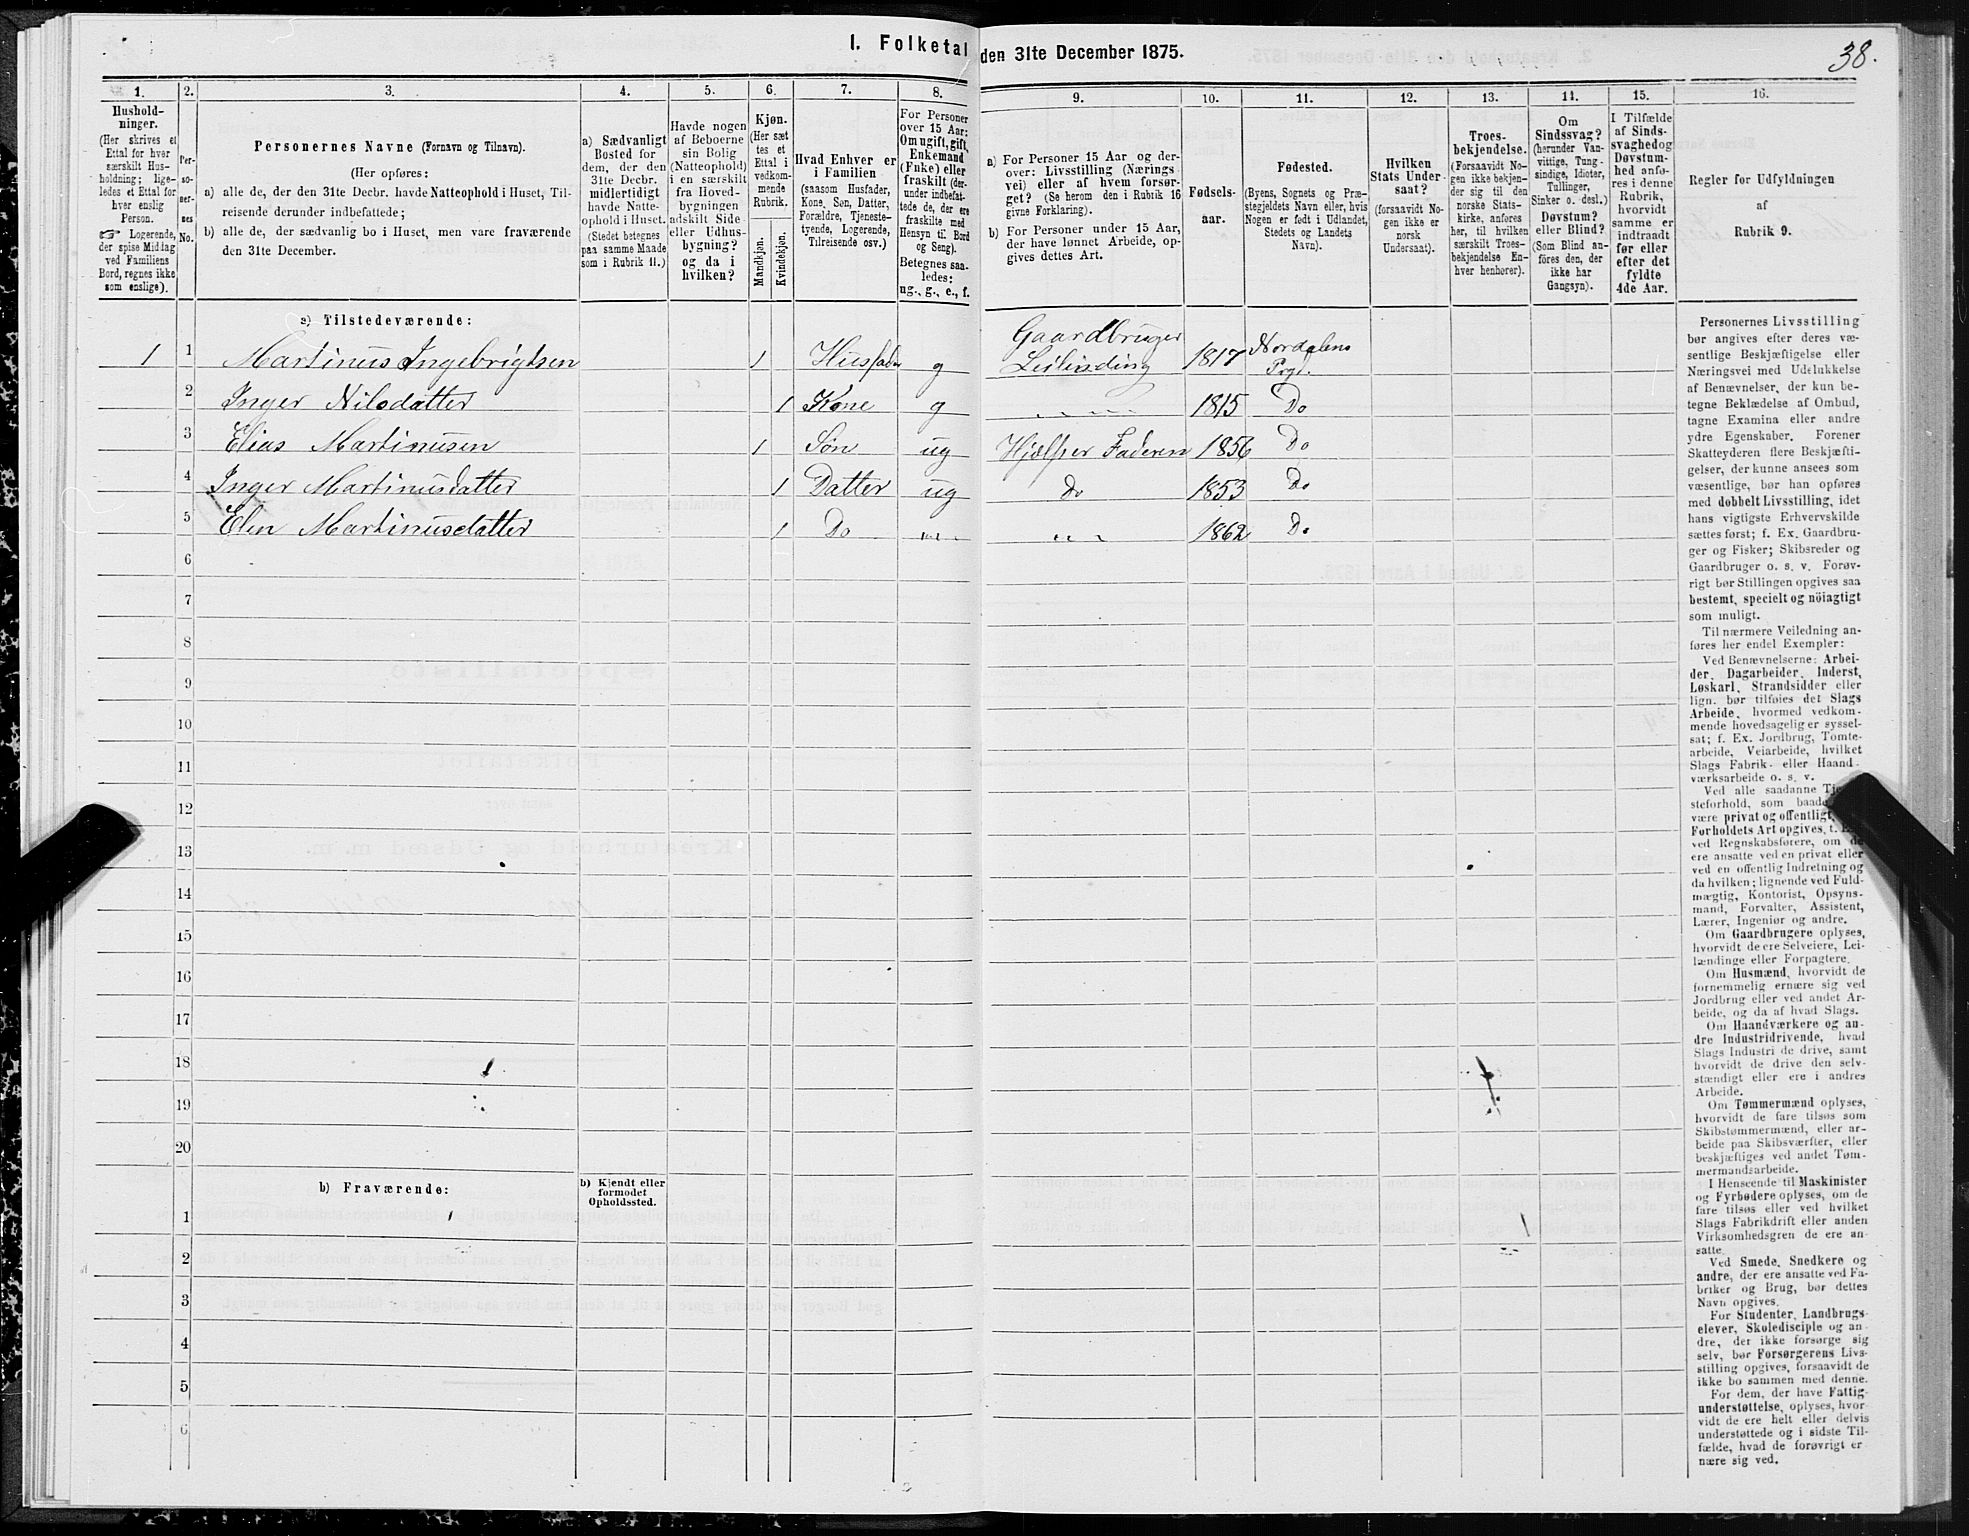 1. Folketal den 31te December 1875.
38.
1.
Hushold-
ninger.
(Her skrives et
Ettal for hver
særskilt Hus-
holdning; lige-
ledes et Ettal for
hver enslig
Person.
☞ Logerende,
der spise Middag
ved Familiens
Bord, regnes ikke
som enslige).
2.
Per-
so-
ner-
nes
No.
3.
Personernes Navne (Fornavn og Tilnavn).
(Her opføres:
a) alle de, der den 31te Decbr. havde Natteophold i Huset, Til-
reisende derunder indbefattede;
b) alle de, der sædvanlig bo i Huset, men vare fraværende
den 31te December.
4.
a) Sædvanligt
Bosted for
dem, der den
31te Decbr.
midlertidigt
havde Natte-
ophold i Huset.
(Stedet betegnes
paa samme Maade
som i Rubrik 11.)
5.
Havde nogen
af Beboerne
sin Bolig
(Natteophold)
i en særskilt
fra Hoved-
bygningen
adskilt Side-
eller Udhus-
bygning?
og da i
hvilken?
6.
Kjøn.
(Her sæt
tes et
Ettal i
vedkom-
mende
Rubrik.
Mandkjøn.
Kvindekjøn.
7.
Hvad Enhver er
i Familien
(saasom Husfader,
Kone, Søn, Datter,
Forældre, Tjeneste-
tyende, Logerende,
Tilreisende osv.)
8.
For Personer
over 15 Aar:
Om ugift, gift,
Enkemand
(Enke) eller
fraskilt (der-
under indbefat-
tede de, der ere
fraskilte med
Hensyn til Bord
og Seng).
Betegnes saa-
ledes:
ug., g., e., f.
9.
a) For Personer 15 Aar og der-
over: Livsstilling (Nærings
vei) eller af hvem forsør-
get? (Se herom den i Rubrik 16
givne Forklaring).
b) For Personer under 15 Aar,
der have lønnet Arbeide, op-
gives dettes Art.
10.
Fødsels-
aar.
11.
Fødested.
(Byens, Sognets og Præ-
stegjeldets Navn eller, hvis
Nogen er født i Udlandet,
Stedets og Landets
Navn).
12.
Hvilken
Stats Under-
saat?
(forsaavidt No-
gen ikke er
norsk
Undersaat).
13.
Troes-
bekjendelse.
(Forsaavidt No-
gen ikke bekjen-
der sig til den
norske Stats-
kirke, anføres
her, til hvilken
særskilt Troes-
bekjendelse En-
hver henhører).
14.
Om
Sindssvag?
(herunder Van-
vittige, Tung-
sindige, Idioter,
Tullinger,
Sinker o. desl.)
Døvstum?
eller Blind?
(Som Blind an-
føres den, der
ikke har
Gangsyn).
15.
I Tilfælde
af Sinds-
svaghed og
Døvstum-
hed anfø-
res i denne
Rubrik,
hvorvidt
samme er
indtraadt
før eller
efter det
fyldte
4de Aar.
16.
Regler for Udfyldningen
af
Rubrik 9.
a) Tilstedeværende:
1 1 Martinus Ingebrigtsen 1 Husfader g Gaardbruger Leilænding 1817 Nordalens Prgd.
2 Inger Nilsdatter 1 Kone g „ „ 1815 Do
3 Elias Martinusen 1 Søn ug Hjælper Faderen 1856 Do
4 Inger Martinusdatter 1 Datter ug do 1853 Do
5 Elen Martinusdatter 1 Do „ „ „ „ 1862 Do
6
7
8
9
10
11
12
13
14
15
16
17
18
19
20
b) Fraværende:
b) Kjendt eller
formodet
Opholdssted.
1
2
3
4
5
6
Personernes Livsstilling
bør angives efter deres væ-
sentlige Beskjæftigelse eller
Næringsvei med Udelukkelse
af Benævnelser, der kun be-
tegne Beklædelse af Ombud,
tagne Examina eller andre
ydre Egenskaber. Forener
Skatteyderen flere Beskjæfti-
gelser, der kunne ansees som
væsentlige, bør han opføres
med dobbelt Livsstilling, idet
hans vigtigste Erhvervskilde
sættes først; f. Ex. Gaardbru-
ger og Fisker; Skibsreder og
Gaardbruger o. s. v. Forøv-
rigt bør Stillingen opgives saa
bestemt, specielt og nöiagtigt
som muligt.
Til nærmere Veiledning an-
føres her endel Exempler:
Ved Benævnelserne: Arbei-
der, Dagarbeider, Inderst,
Løskarl, Strandsidder eller
lign. bør tilføies det Slags
Arbeide, hvormed vedkom-
mende hovedsagelig er syssel-
sat; f. Ex. Jordbrug, Tomte-
arbeide, Veiarbeide, hvilket
Slags Fabrik- eller Haand-
værksarbeide o. s. v.
Ved alle saadanne
steforhold, som
være privat og offentligt,
Forholdets Art opgives, t.
ved Regnskabsførere, om de
ere ansatte ved en privat eller
ved en offentlig Indretning og
da hvilken; lignende ved Fuld-
mægtig, Kontorist, Opsyns-
mand, Forvalter, Assistent,
Lærer, Ingeniør og andre.
Om Gaardbrugere oplyses,
hvorvidt de ere Selveiere, Lei-
lændinge eller Forpagtere.
Om Husmænd, hvorvidt de
fornemmelig ernære sig ved
Jordbrug eller ved andet Ar-
beide, og da af hvad Slags.
Om Haandværkere og an-
dre Industridrivende, hvad
Slags Industri de drive, samt
hvorvidt de drive den selv-
stændigt eller ere i andres
Arbeide.
Om Tømmermænd oplyses,
hvorvidt de fare tilsøs som
Skibstømmermænd, eller ar-
beide paa Skibsværfter, eller
beskjæftiges ved andet Tøm-
mermandsarbeide.
I Henseende til Maskinister
og Fyrbødere oplyses, om de
fare tilsøs eller ved hvilket
Slags Fabrikdrift eller anden
Virksomhedsgren de ere an-
satte.
Ved Smede, Snedkere og
andre, der ere ansatte ved Fa-
briker og Brug, bør dettes
Navn opgives.
For Studenter, Landbrugs-
elever, Skoledisciple og an-
dre, der ikke forsørge sig
selv, bør Forsørgerens Livs-
stilling opgives, forsaavidt de
ikke bo sammen med denne.
For dem, der have Fattig-
understøttelse, oplyses, hvor-
vidt de ere helt eller delvis
understøttede og i sidste Til-
fælde, hvad de forøvrigt er
nære sig ved.